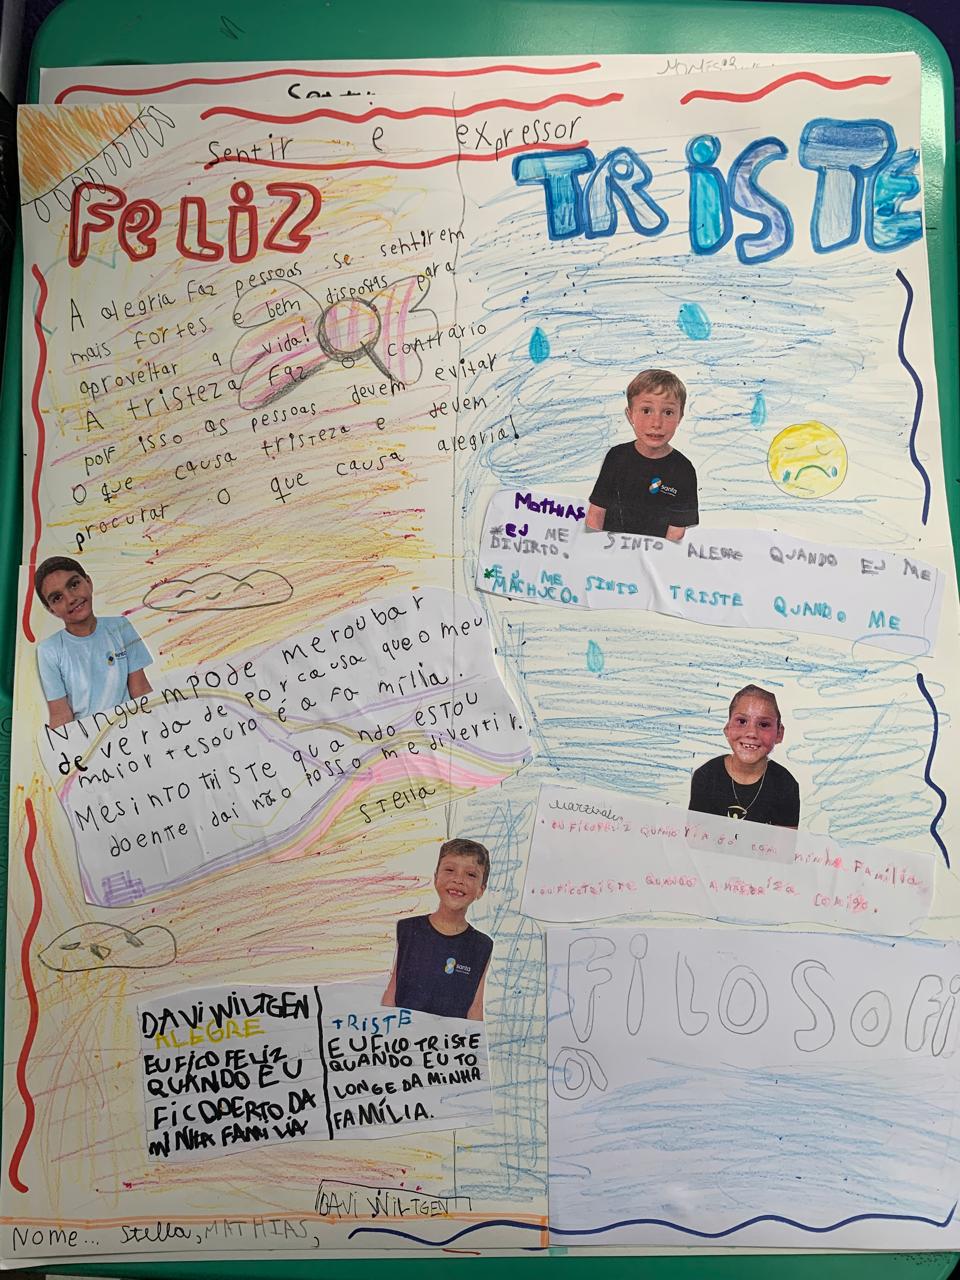 Sentir e expressor
FELIZ
TRISTE
A alegria faz pessoas se sentirem
mais fortes e bem dispostas para
aproveltar a vida!
A tristeza faz o contrário
por isso as pessoas devem evitar
o que causa tristeza e devem
procurar o que causa alegria!
MatHIAS
*EU ME SINTO ALEGRE QUANDO EU ME
DIVIRTO.
*EU ME SINTO TRISTE QUANDO ME
MACHUCO.
santa
Ninguempode meroubar
de verda de porcausa que o meu
maior tesouro é a fa mília.
Mesinto triste quando estou
doente dai não posso me divertir.
Stella
• eu ficofeliz quando com minha Família
• eu ficotriste quando a comigo.
santa
DAVI WILTGEN
ALEGRE
EU FICO FELIZ
QUANDO EU
FICOPERTO DA
MINHA FAMILIA
TRISTE
EU FICO TRISTE
QUANDO EU TO
LONGE DA MINHA
FAMÍLIA.
FILOSOFI
a
DAVI WILTGEN
Nome... Stella, MATHIAS,